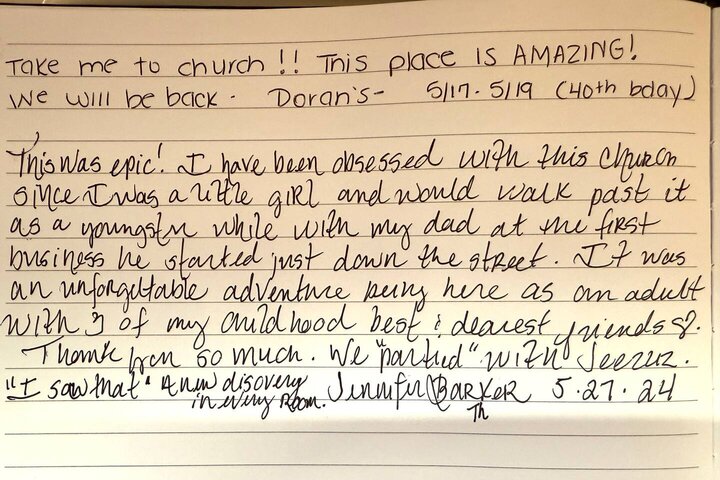 Take me to church !! This place is AMAZING!
We will be back - Doran's - 5/17 - 5/19 (40th bday)
This was epic! I have been obsessed with this church
since I was a little girl and would walk past it
as a youngster while with my dad at the first
business he started just down the street. It was
an unforgettable adventure being here as an adult
with 3 of my childhood best & dearest friends
Thank you so much. We "partied" with Jeezuz.
"I saw that" A new discovery
in every room. Jennifer Barker 5.27.24
Th